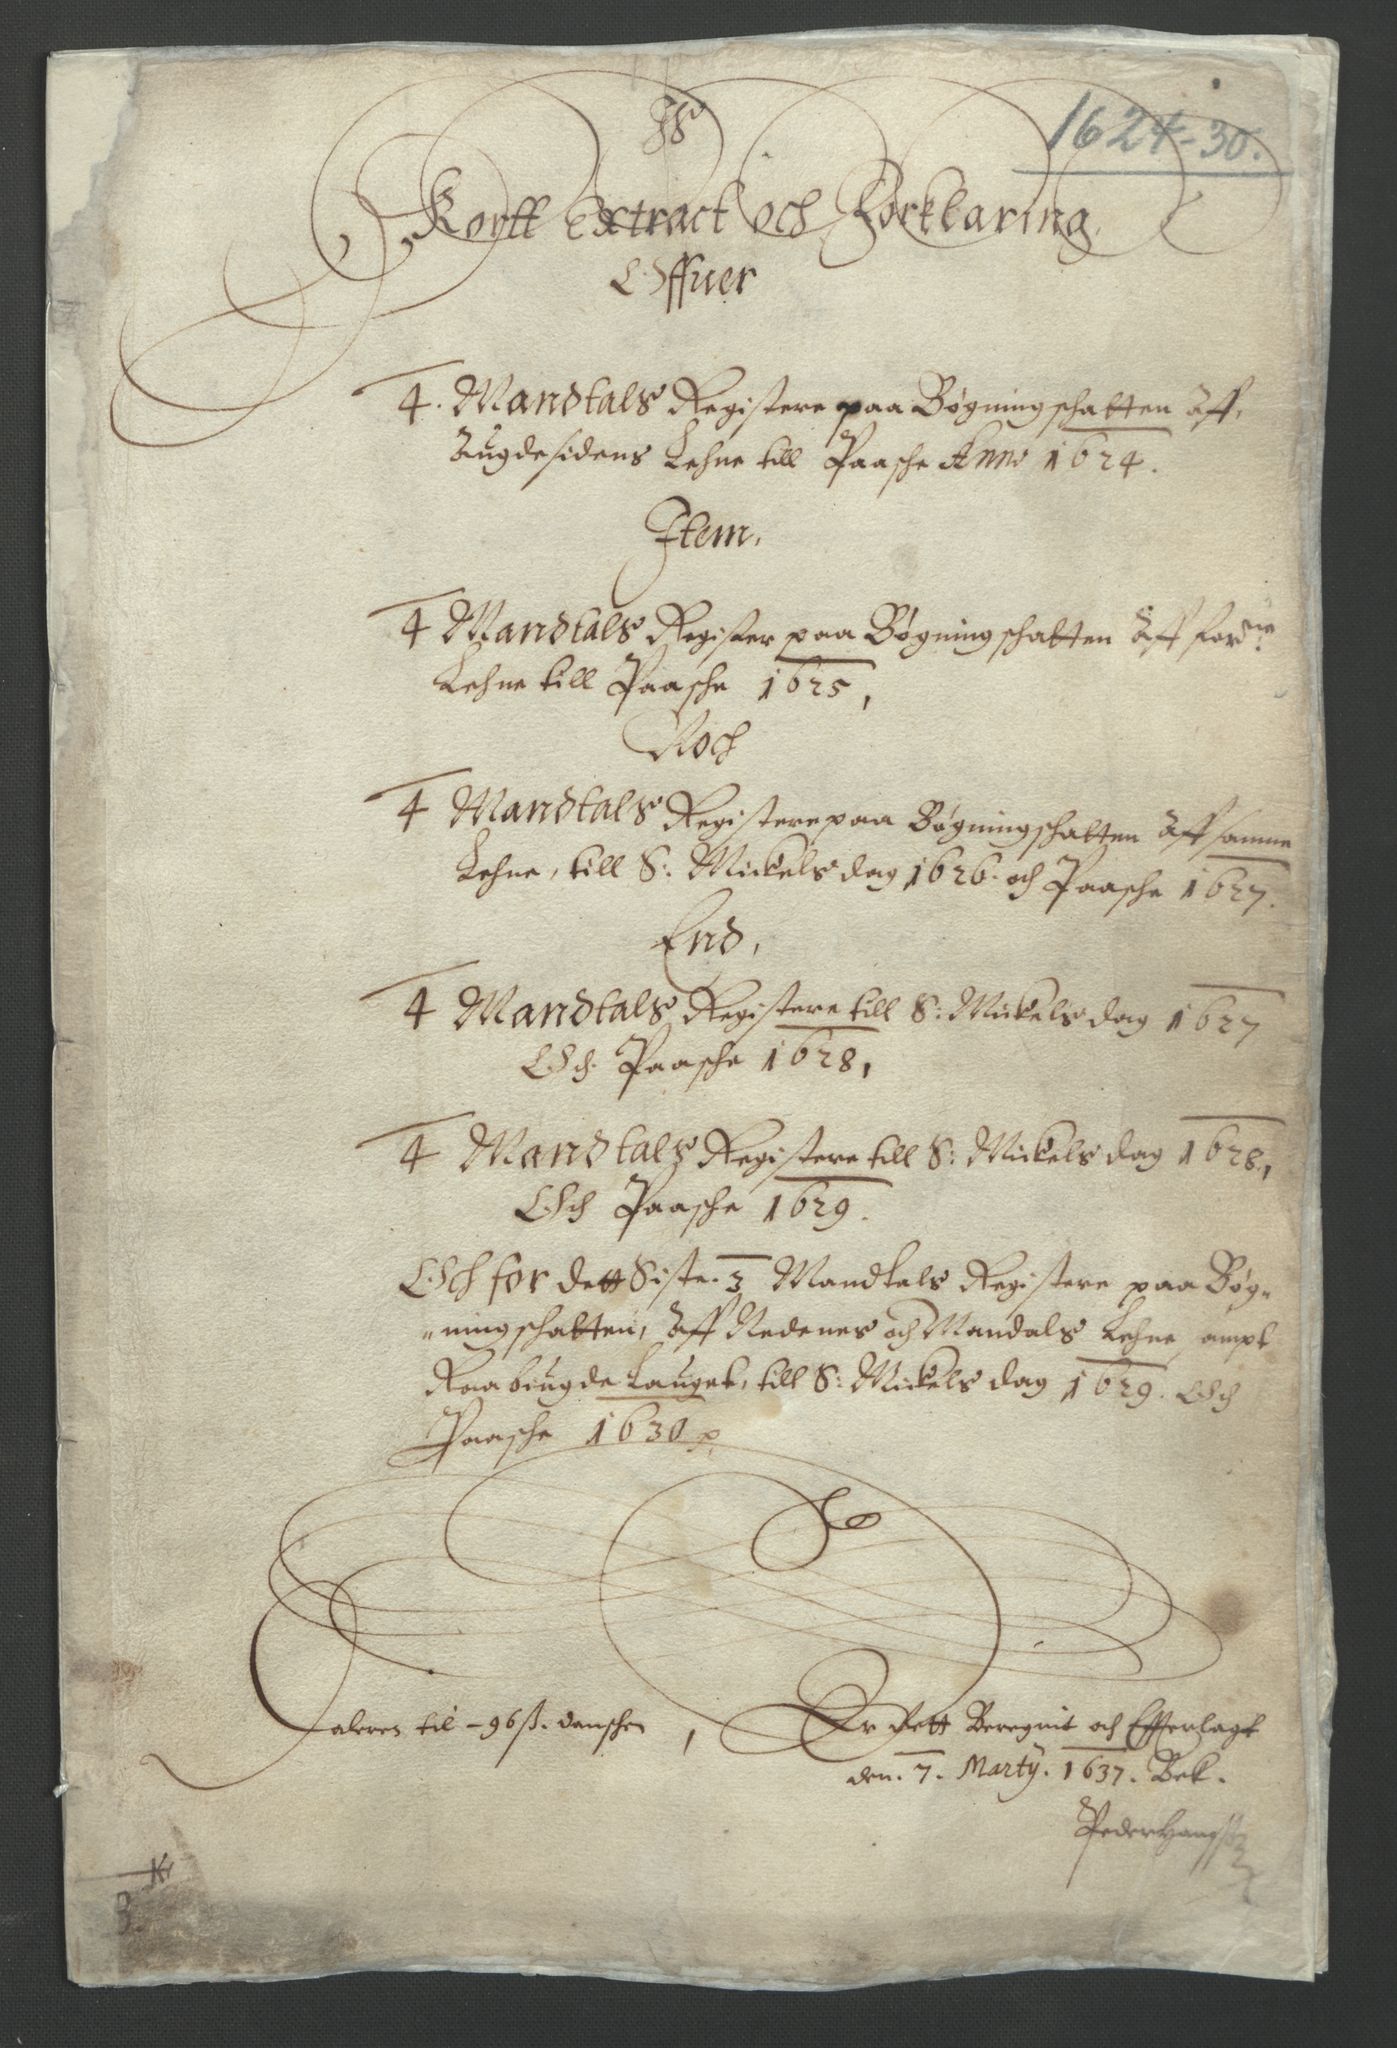 1624-30.
Kortt Extract och Forklaring
Offuer
4. Mandtals Registere paa Bøgningschatten Aff
Augdesidens Lehne till Paasche Anno 1624.
Item,
4 Mandtals Register paa Bøgningschatten Aff forne:
Lehne till Paasche 1625,
Noch
4 Mandtals Registere paa Bøgningschatten Aff samme
Lehne, till S: Mickels dag 1626. och Paasche 1627.
End,
4 Mandtals Registere till S: Mickels dag 1627
Och Paasche 1628,
4 Mandtals Registere till S: Mickels dag 1628,
Och Paasche 1629.
Och for dett Siste. 3 Mandtals Registere paa Bøg-
-ningschatten, Aff Nedenes och Mandals Lehne, ampt
Raabiugde Lauget, till S: Mickels dag 1629. Och
Paasche 1630 p.
Daleren til - 96 ß. danschen,
Er Dett Beregnit och Efferlagt
den. 7. Martij. 1637. Bek.
Peder
Kr
3